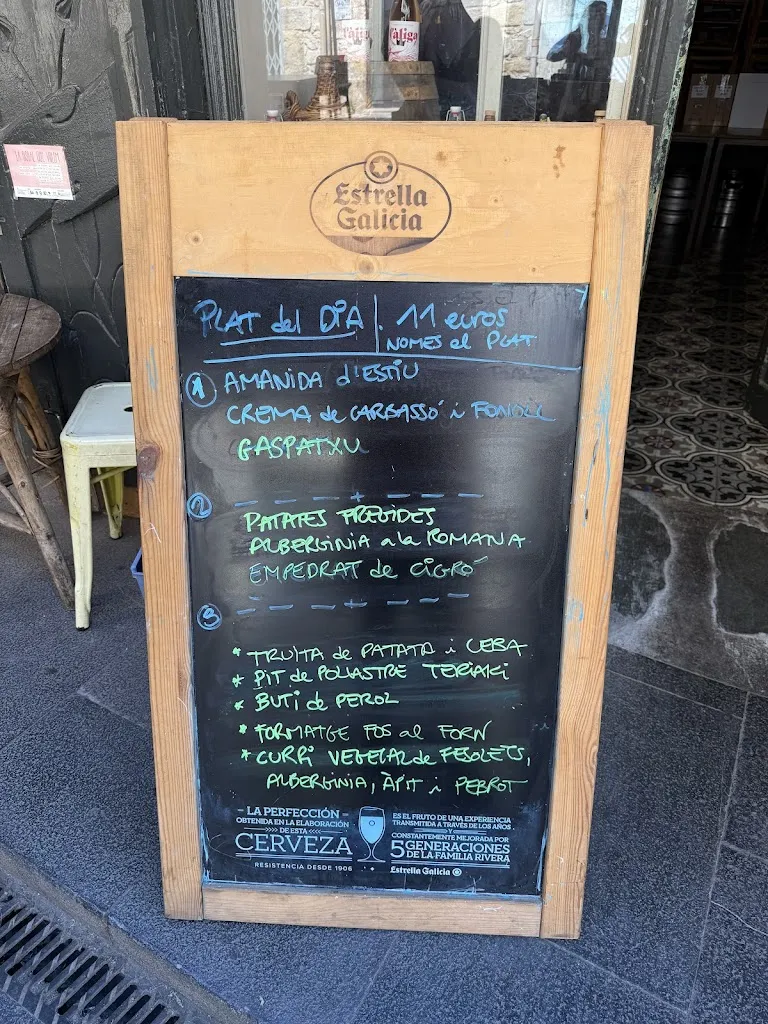 Tàliga
Estrella
Galicia
PLAT del DIA | 11 euros
NOMES el PLAT
1 AMANIDA d'ESTIU
CREMA de CARBASSÓ i FONOLL
GASPATXU
2
PATATES FREGIDES
ALBERGINIA a la ROMANA
EMPEDRAT de CIGRÓ
3
* TRUITA de PATATA i CEBA
* PIT de POLLASTRE TERIAKI
* BUTI de PEROL
* FORMATGE FOS al FORN
* CURRI VEGETAL de FESOLETS,
ALBERGINIA, ÀPIT i PEBROT
- LA PERFECCIÓN -
OBTENIDA EN LA ELABORACIÓN
>>>> DE ESTA <<<<
CERVEZA
RESISTENCIA DESDE 1906
ES EL FRUTO DE UNA EXPERIENCIA
TRANSMITIDA A TRAVÉS DE LOS AÑOS
Y
CONSTANTEMENTE MEJORADA POR
5 GENERACIONES
DE LA FAMILIA RIVERA
Estrella Galicia